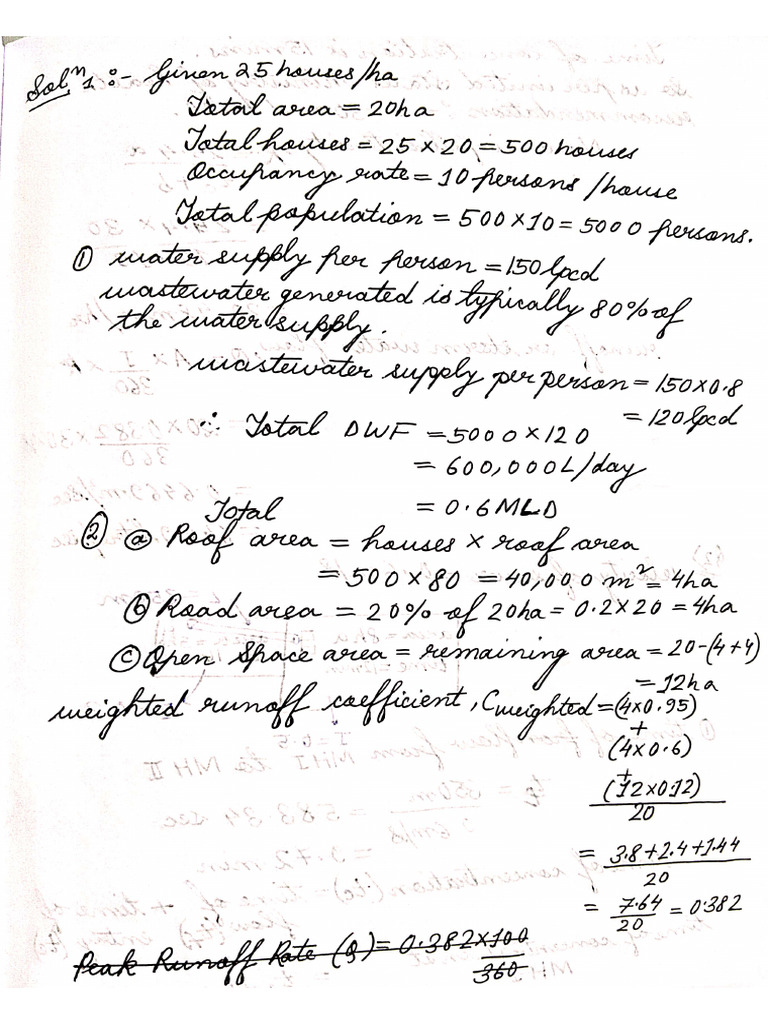 Solⁿ 1 :- Given 25 houses/ha
Total area = 20ha
Total houses = 25 × 20 = 500 houses
Occupancy rate = 10 persons /house
Total population = 500 × 10 = 5000 persons.
① water supply per person = 150 lpcd
wastewater generated is typically 80% of
the water supply.
wastewater supply per person = 150 × 0.8
= 120 lpcd
∴ Total DWF = 5000 × 120
= 600,000L/day
= 0.6 MLD
② ⓐ Total Roof area = houses × roof area
= 500 × 80 = 40,000 m² = 4ha
ⓑ Road area = 20% of 20ha = 0.2 × 20 = 4ha
ⓒ Open Space area = remaining area = 20 - (4 + 4)
= 12ha
weighted runoff coefficient, Cweighted = (4×0.95)
+
(4×0.6)
+
(12×0.12)
20
= 3.8 + 2.4 + 1.44
20
= 7.64 = 0.382
20
Peak Runoff Rate (Q) = 0.382 × 100
360